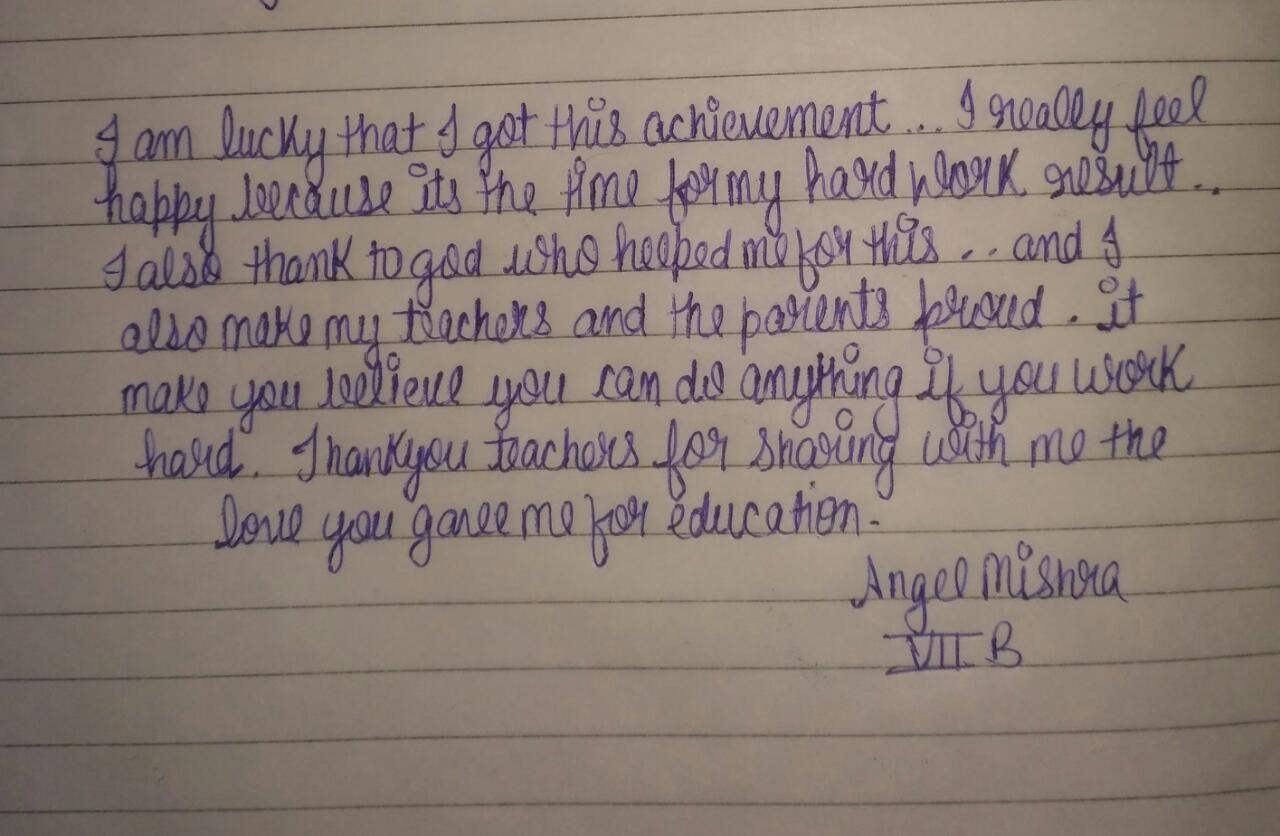 I am lucky that I got this achievement... I really feel
happy because its the time for my hard work result..
I also thank to god who helped me for this .. and I
also make my teachers and the parents proud. it
make you believe you can do anything if you work
hard. Thankyou teachers for sharing with me the
love you gave me for education.
Angel Mishra
VII B